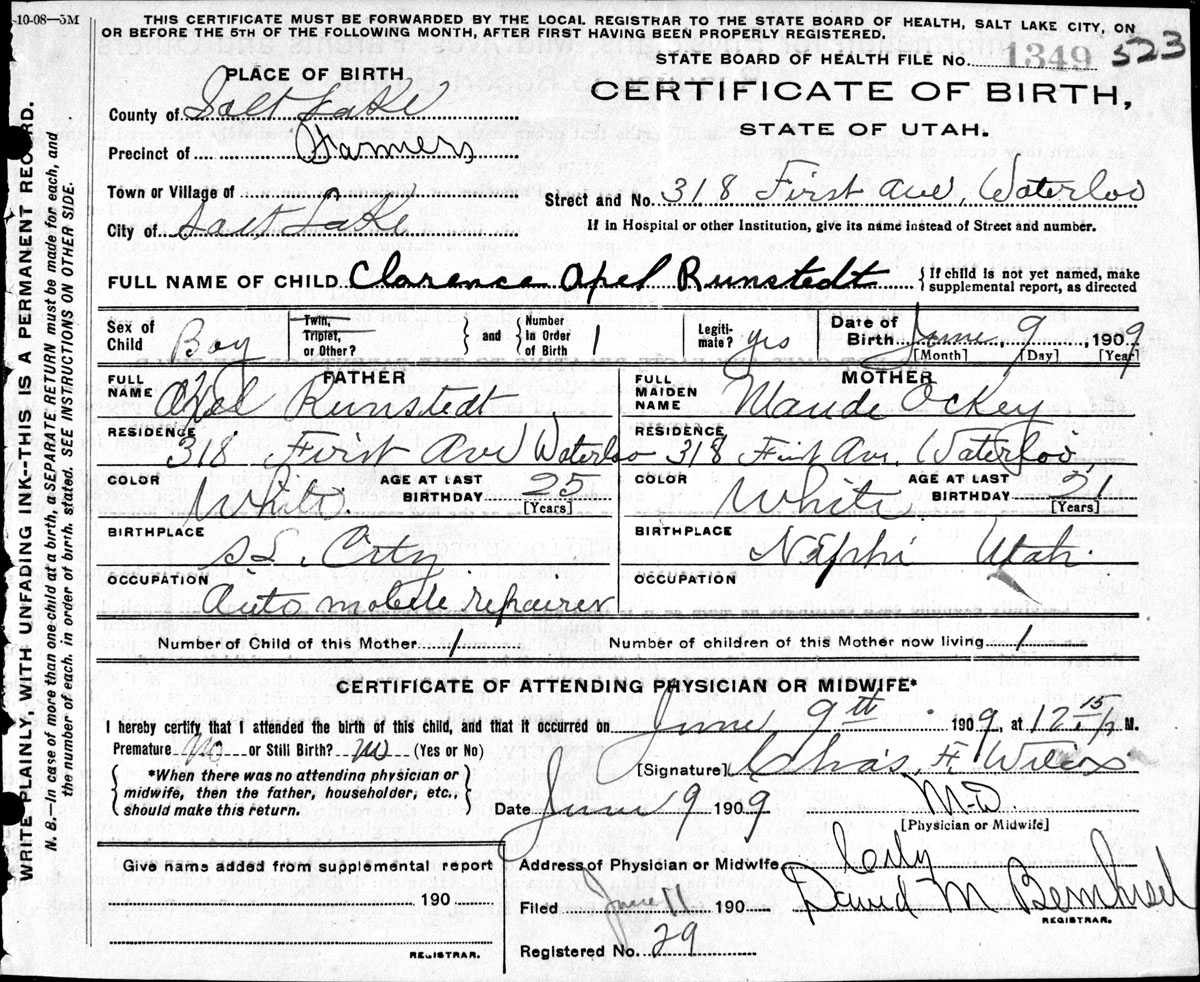 10-08—5M
THIS CERTIFICATE MUST BE FORWARDED BY THE LOCAL REGISTRAR TO THE STATE BOARD OF HEALTH, SALT LAKE CITY, ON
OR BEFORE THE 5TH OF THE FOLLOWING MONTH, AFTER FIRST HAVING BEEN PROPERLY REGISTERED.
STATE BOARD OF HEALTH FILE No. 1349 523
PLACE OF BIRTH
CERTIFICATE OF BIRTH,
STATE OF UTAH.
County of Salt Lake
Precinct of Farmers
Town or Village of
Street and No. 318 First Ave, Waterloo
City of Salt Lake
If in Hospital or other Institution, give its name instead of Street and number.
FULL NAME OF CHILD Clarence Apel Runstedt { If child is not yet named, make
supplemental report, as directed
Sex of Child Boy
Twin, Triplet, or Other? } and { Number in Order of Birth 1
Legiti-mate? yes
Date of Birth June, 9, 1909
[Month] [Day] [Year]
FATHER
FULL NAME Axel Runstedt
MOTHER
FULL MAIDEN NAME Maude Ockey
RESIDENCE 318 First Ave Waterloo
RESIDENCE 318 First Ave. Waterloo,
COLOR White. AGE AT LAST BIRTHDAY 25 [Years]
COLOR White. AGE AT LAST BIRTHDAY 21 [Years]
BIRTHPLACE S.L. City
BIRTHPLACE Nephi Utah.
OCCUPATION Auto mobile repairer
OCCUPATION
Number of Child of this Mother 1
Number of children of this Mother now living 1
CERTIFICATE OF ATTENDING PHYSICIAN OR MIDWIFE*
I hereby certify, that I attended the birth of this child, and that it occurred on June 9th 1909, at 12 15 M.
Premature No or Still Birth? No (Yes or No)
{ *When there was no attending physician or
midwife, then the father, householder, etc.,
should make this return. }
[Signature] Chas. F. Wilcox
Date June 9 1909
M-D
[Physician or Midwife]
Give name added from supplemental report
190
REGISTRAR.
Address of Physician or Midwife City
Filed June 11 190
David M Bernhisel
REGISTRAR.
Registered No. 29
WRITE PLAINLY, WITH UNFADING INK--THIS IS A PERMANENT RECORD.
N. B.—In case of more than one child at a birth, a SEPARATE RETURN must be made for each, and
the number of each, in order of birth, stated. SEE INSTRUCTIONS ON OTHER SIDE.